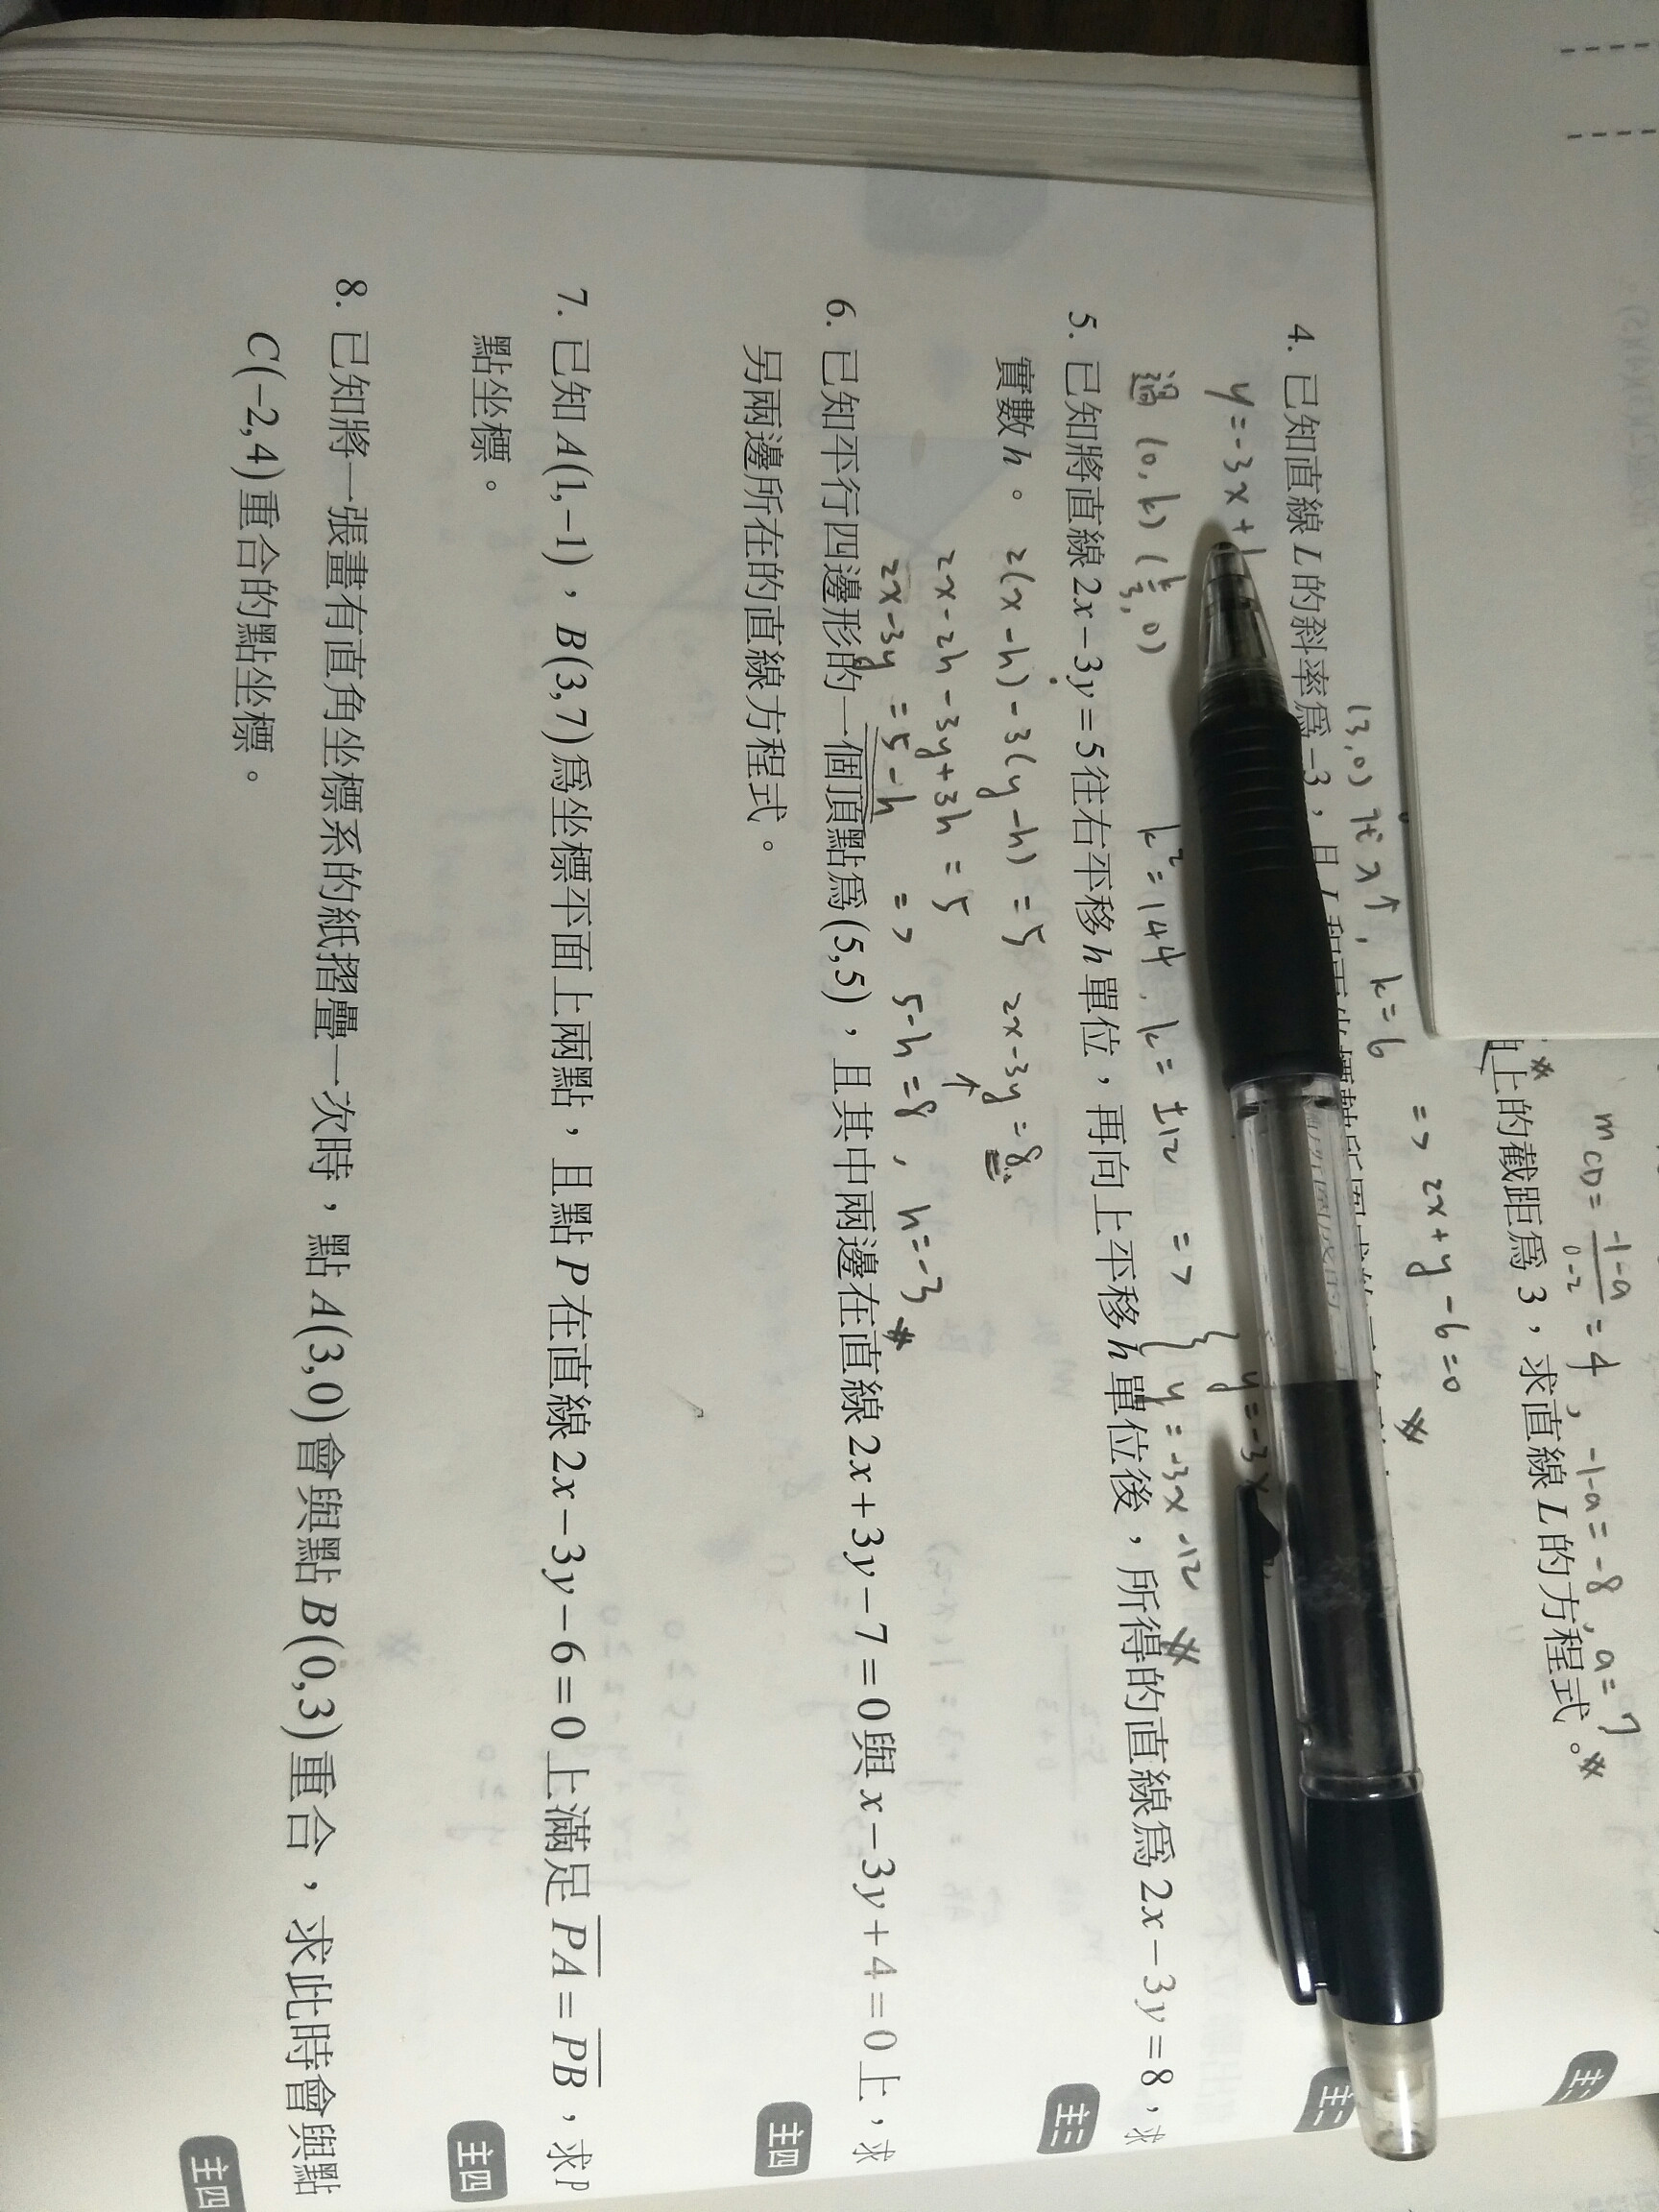 m CD = -1-a / 0-2 = 4 , -1-a = -8 , a = 7 *
上的截距為 3，求直線 L 的方程式。
(3,0) 代入↑, k=6 => 2x+y-6=0 *
4. 已知直線 L 的斜率為 -3，且 L
y=-3x+
y=-3x
過 (0,k) (k/3,0) k²=144, k=±12 => { y=-3x-12 *
5. 已知將直線 2x-3y=5 往右平移 h 單位，再向上平移 h 單位後，所得的直線為 2x-3y=8，求
實數 h。 2(x-h)-3(y-h)=5 2x-3y=8
2x-2h-3y+3h=5
2x-3y=5-h => 5-h=8 , h=-3 *
6. 已知平行四邊形的一個頂點為(5,5)，且其中兩邊在直線 2x+3y-7=0與 x-3y+4=0上，求
另兩邊所在的直線方程式。
主四
7. 已知 A(1,-1)，B(3,7)為坐標平面上兩點，且點 P 在直線 2x-3y-6=0上滿足 PA=PB，求P
點坐標。
主四
8. 已知將一張畫有直角坐標系的紙摺疊一次時，點 A(3,0)會與點 B(0,3)重合，求此時會與點
C(-2,4)重合的點坐標。
主四